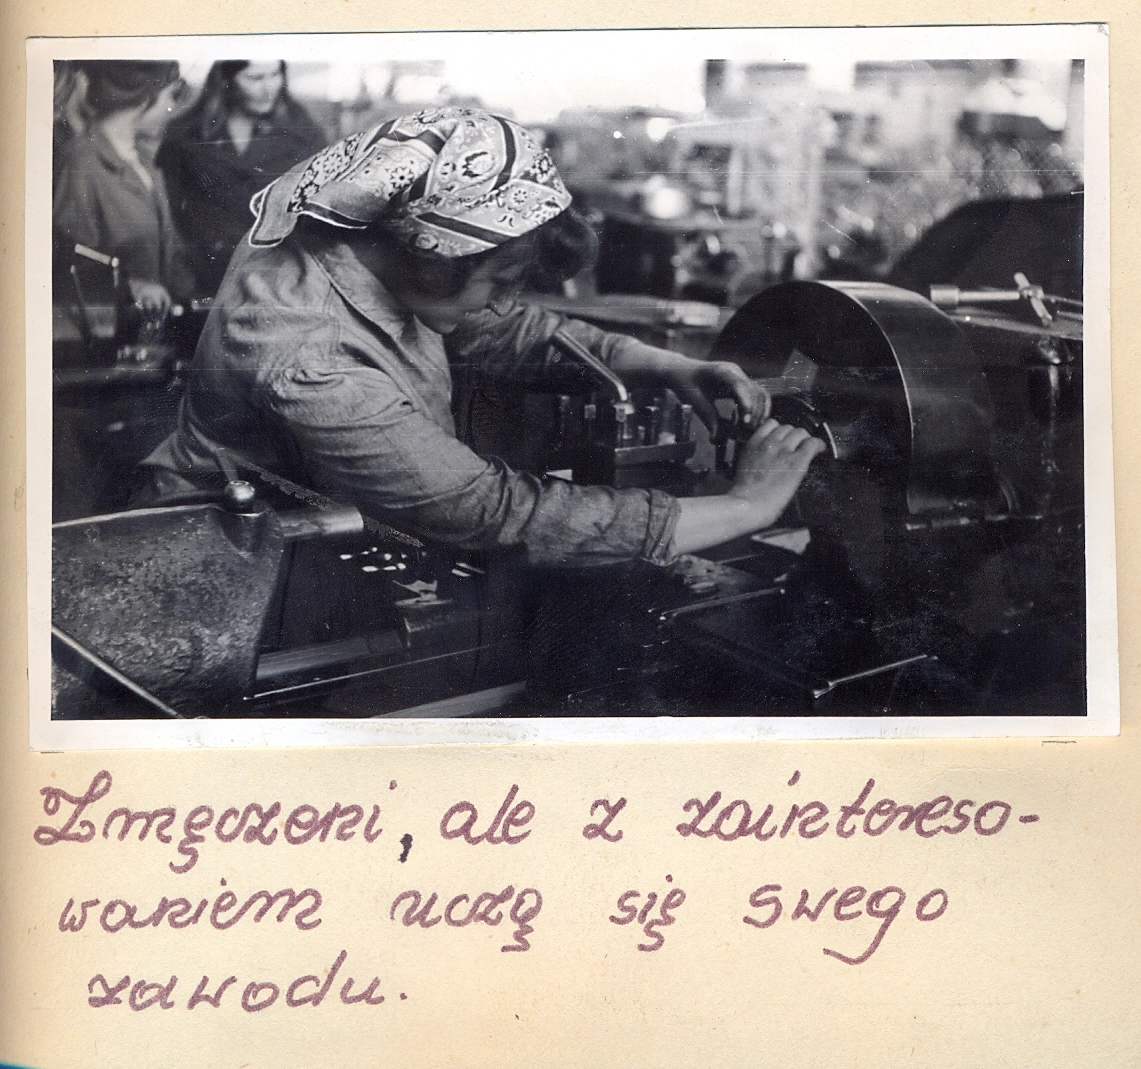 Zmęczeni, ale z zaintereso-
waniem uczą się swego
zawodu.